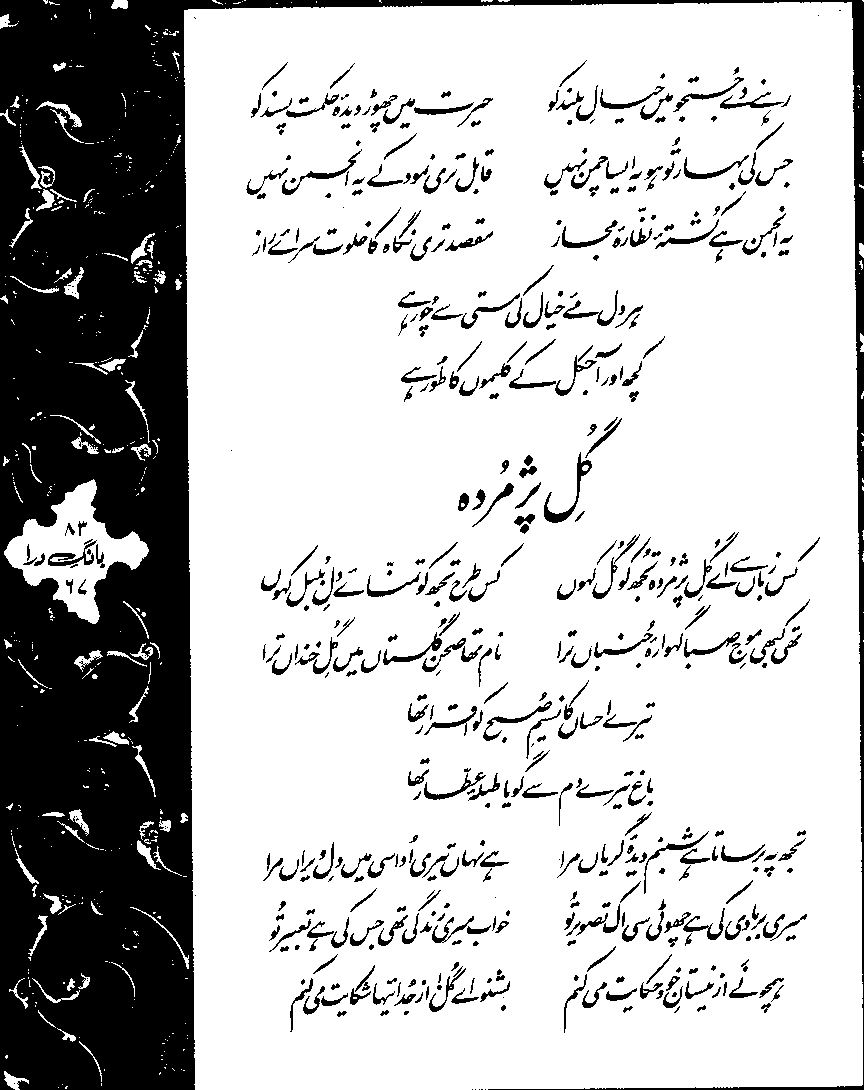 رہنے دے جستجو میں خیالِ بلند کو حیرت میں چھوڑ دیدۂ حکمت پسند کو
جس کی بہار تُو ہو یہ ایسا چمن نہیں قابل تری نمود کے یہ انجمن نہیں
یہ انجمن ہے کُشتۂ نظّارۂ مجاز مقصد تری نگاہ کا خلوت سرائے راز
ہر دل مئے خیال کی مستی سے چُور ہے
کچھ اور آجکل کے کلیموں کا طُور ہے
گُلِ پژمُردہ
کس زباں سے اے گُلِ پژمُردہ تجھ کو گُل کہوں کس طرح تجھ کو تمنّائے دلِ بُلبل کہوں
تھی کبھی موجِ صبا گہوارۂ جُنباں ترا نام تھا صحنِ گُلستاں میں گُلِ خنداں ترا
تیرے احساں کا نسیمِ صُبح کو اقرار تھا
باغ تیرے دم سے گویا طبلۂ عطّار تھا
تجھ پہ برساتا ہے شبنم دیدۂ گریاں مرا ہے نہاں تیری اُداسی میں دلِ ویراں مرا
میری بربادی کی ہے چھوٹی سی اک تصویر تُو خواب میری زندگی تھی جس کی ہے تعبیر تُو
ہمچو نَے از نیستانِ خود حکایت می کنم بشنو اے گُل! از جُدائیہا شکایت می کنم
۸۳
بانگِ درا
۶۷